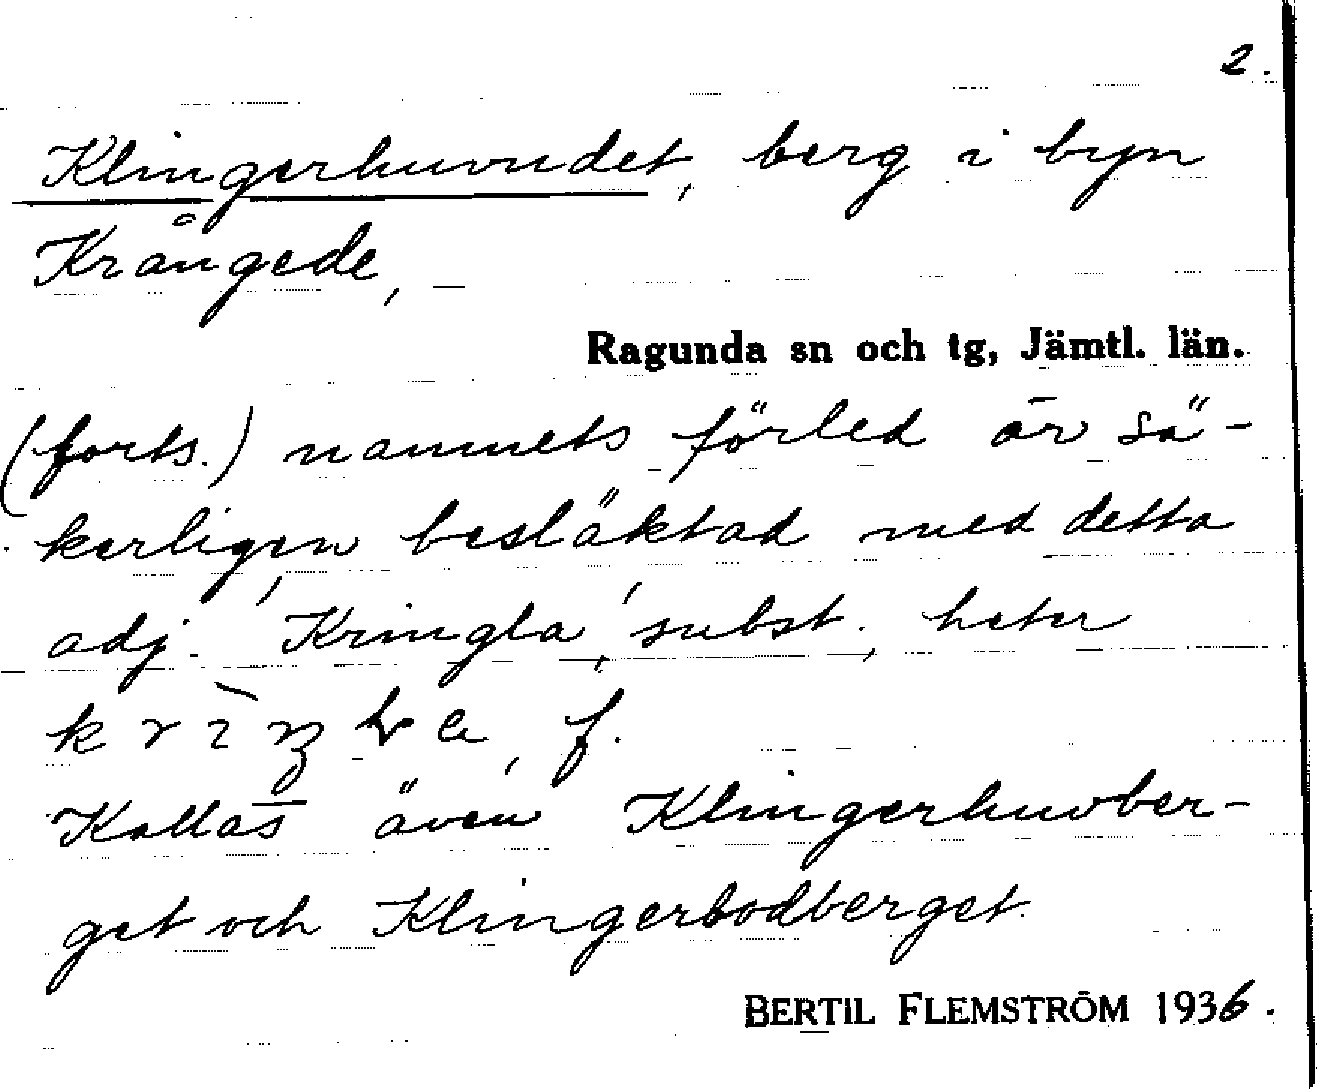 2.
Klingerhuvudet, berg i byn
Krångede,
Ragunda sn och tg, Jämtl. län.
(forts.) namnets förled är sä-
kerligen besläktad med detta
adj. 'Kringla', subst., heter
f.
Kallas även Klingerhuvber-
get och Klingerbodberget.
BERTIL FLEMSTRÖM 1936.